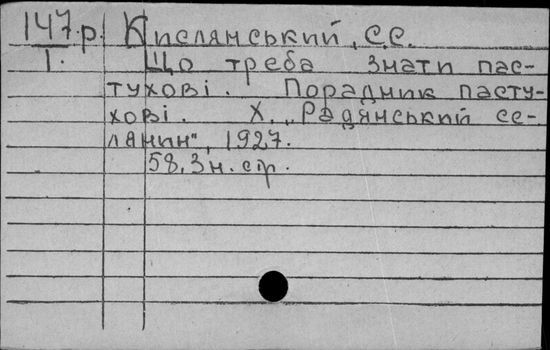 147.р. Кислянський, С.С.
І. Що треба знати пас-
тухові. Порадник пасту-
хові. Х. „Радянський се-
лянин", 1927.
58, 3 н. ср.